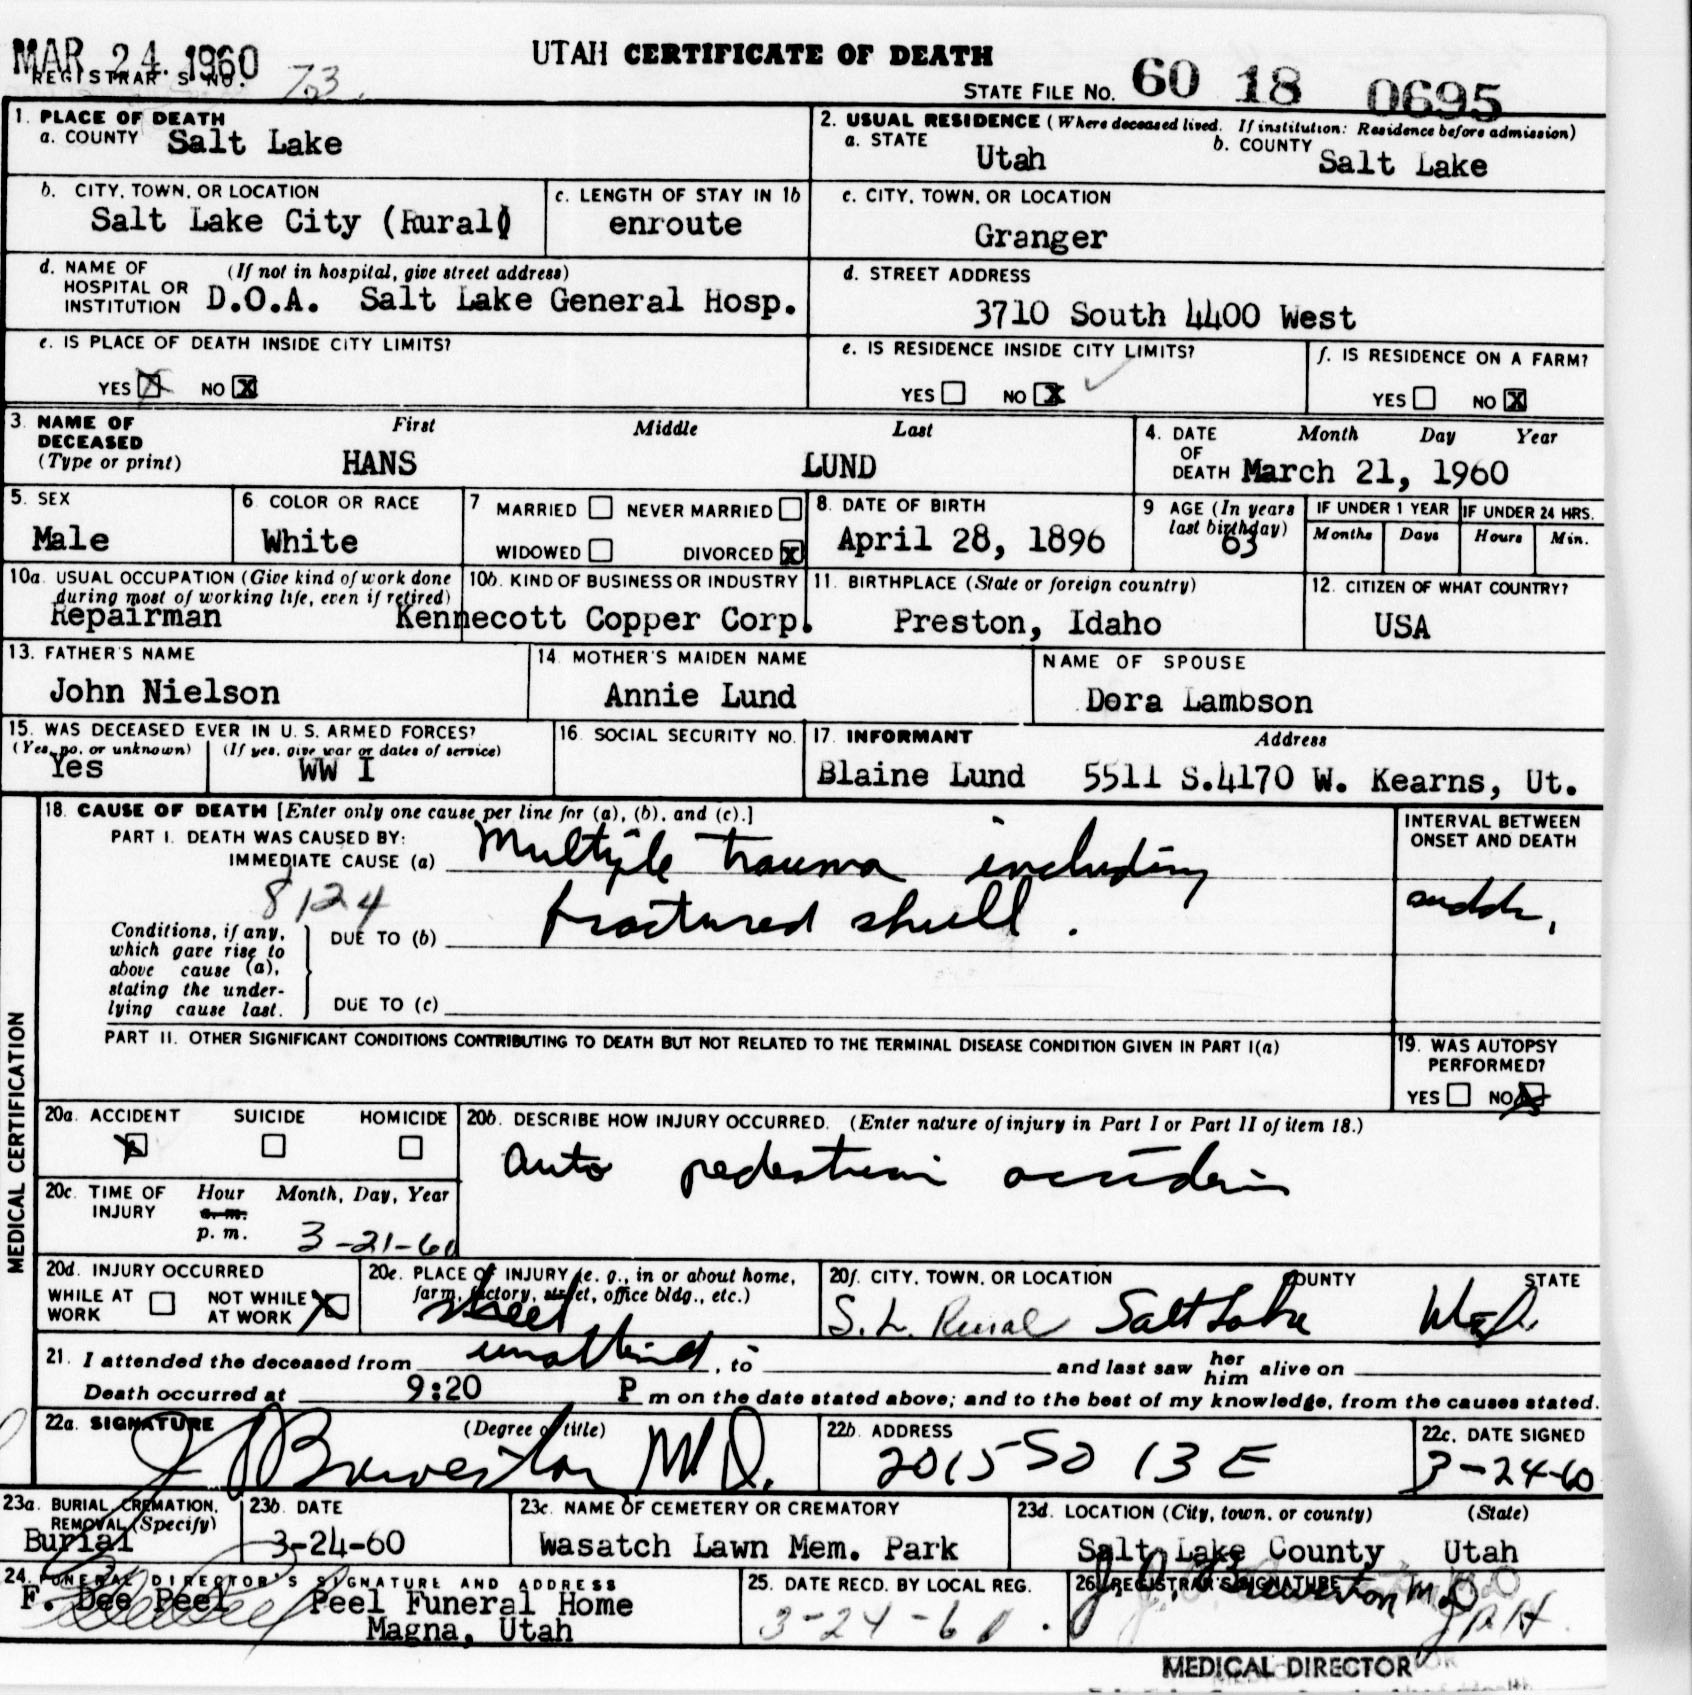 MAR 24 1960
UTAH CERTIFICATE OF DEATH
REGISTRAR'S NO. 73
STATE FILE NO. 60 18 0695
1. PLACE OF DEATH
a. COUNTY Salt Lake
2. USUAL RESIDENCE (Where deceased lived. If institution: Residence before admission)
a. STATE Utah b. COUNTY Salt Lake
b. CITY, TOWN, OR LOCATION
Salt Lake City (Rural)
c. LENGTH OF STAY IN 1b
enroute
c. CITY, TOWN, OR LOCATION
Granger
d. NAME OF HOSPITAL OR INSTITUTION (If not in hospital, give street address)
D.O.A. Salt Lake General Hosp.
d. STREET ADDRESS
3710 South 4400 West
e. IS PLACE OF DEATH INSIDE CITY LIMITS?
YES NO X
e. IS RESIDENCE INSIDE CITY LIMITS?
YES NO X
f. IS RESIDENCE ON A FARM?
YES NO X
3. NAME OF DECEASED (Type or print)
First Middle Last
HANS LUND
4. DATE OF DEATH Month Day Year
March 21, 1960
5. SEX
Male
6 COLOR OR RACE
White
7 MARRIED NEVER MARRIED
WIDOWED DIVORCED X
8. DATE OF BIRTH
April 28, 1896
9 AGE (In years last birthday)
63
IF UNDER 1 YEAR IF UNDER 24 HRS.
Months Days Hours Min.
10a. USUAL OCCUPATION (Give kind of work done during most of working life, even if retired)
Repairman
10b. KIND OF BUSINESS OR INDUSTRY
Kennecott Copper Corp.
11. BIRTHPLACE (State or foreign country)
Preston, Idaho
12. CITIZEN OF WHAT COUNTRY?
USA
13. FATHER'S NAME
John Nielson
14 MOTHER'S MAIDEN NAME
Annie Lund
NAME OF SPOUSE
Dora Lambson
15. WAS DECEASED EVER IN U. S. ARMED FORCES?
(Yes, no, or unknown) (If yes, give war or dates of service)
Yes WW I
16. SOCIAL SECURITY NO.
17. INFORMANT Address
Blaine Lund 5511 S.4170 W. Kearns, Ut.
MEDICAL CERTIFICATION
18. CAUSE OF DEATH [Enter only one cause per line for (a), (b), and (c).]
PART I. DEATH WAS CAUSED BY:
IMMEDIATE CAUSE (a) Multiple trauma including
8124
fractured skull.
INTERVAL BETWEEN ONSET AND DEATH
Conditions, if any, which gave rise to above cause (a), stating the underlying cause last.
DUE TO (b)
DUE TO (c)
PART II. OTHER SIGNIFICANT CONDITIONS CONTRIBUTING TO DEATH BUT NOT RELATED TO THE TERMINAL DISEASE CONDITION GIVEN IN PART I(a)
19. WAS AUTOPSY PERFORMED?
YES NO X
20a. ACCIDENT SUICIDE HOMICIDE
X
20b. DESCRIBE HOW INJURY OCCURRED. (Enter nature of injury in Part I or Part II of item 18.)
Auto pedestrian accident
20c. TIME OF INJURY Hour Month, Day, Year
a. m.
p. m. 3-21-60
20d. INJURY OCCURRED
WHILE AT WORK NOT WHILE AT WORK X
20e. PLACE OF INJURY (e. g., in or about home, farm, factory, street, office bldg., etc.)
street
20f. CITY, TOWN, OR LOCATION COUNTY STATE
S. L. Rural Salt Lake Utah
21. I attended the deceased from unattend, to and last saw her him alive on
Death occurred at 9:20 P m on the date stated above; and to the best of my knowledge, from the causes stated.
22a. SIGNATURE (Degree or title)
M.D.
22b. ADDRESS
2015 SO 13 E
22c. DATE SIGNED
3-24-60
23a. BURIAL, CREMATION, REMOVAL (Specify)
Burial
23b. DATE
3-24-60
23c. NAME OF CEMETERY OR CREMATORY
Wasatch Lawn Mem. Park
23d. LOCATION (City, town, or county) (State)
Salt Lake County Utah
24. FUNERAL DIRECTOR'S SIGNATURE AND ADDRESS
F. Dee Peel Peel Funeral Home
Magna, Utah
25. DATE RECD. BY LOCAL REG.
3-24-60
26. REGISTRAR'S SIGNATURE
MEDICAL DIRECTOR